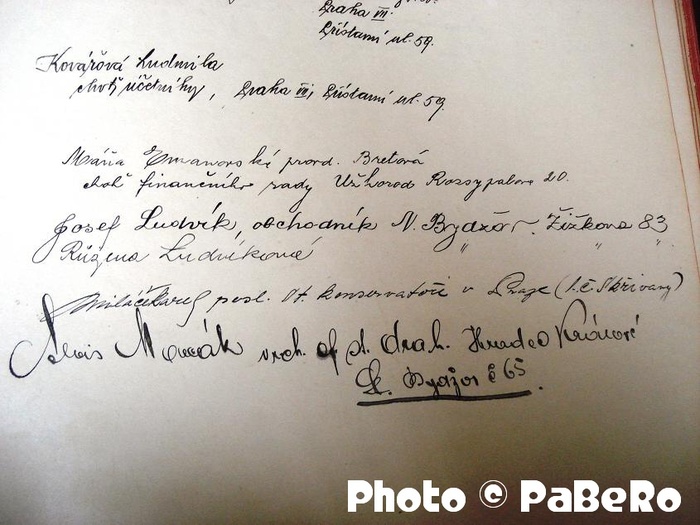 Praha VII.
Přístavní ul. 59.
Kovářová Ludmila
choť účetního, Praha VII, Přístavní ul. 59
Máňa provd. Bretová
choť finančního rady Užhorod 20.
Josef Ludvík, obchodník N. Bydžov. Žižkova 83
Růžena Ludvíková " " "
posl. st. konservatoře v Praze (t.č. Skřivany)
Alois vrch. of. st. drah. Hradec Králové
Bydžov č 65
Photo © PaBeRo